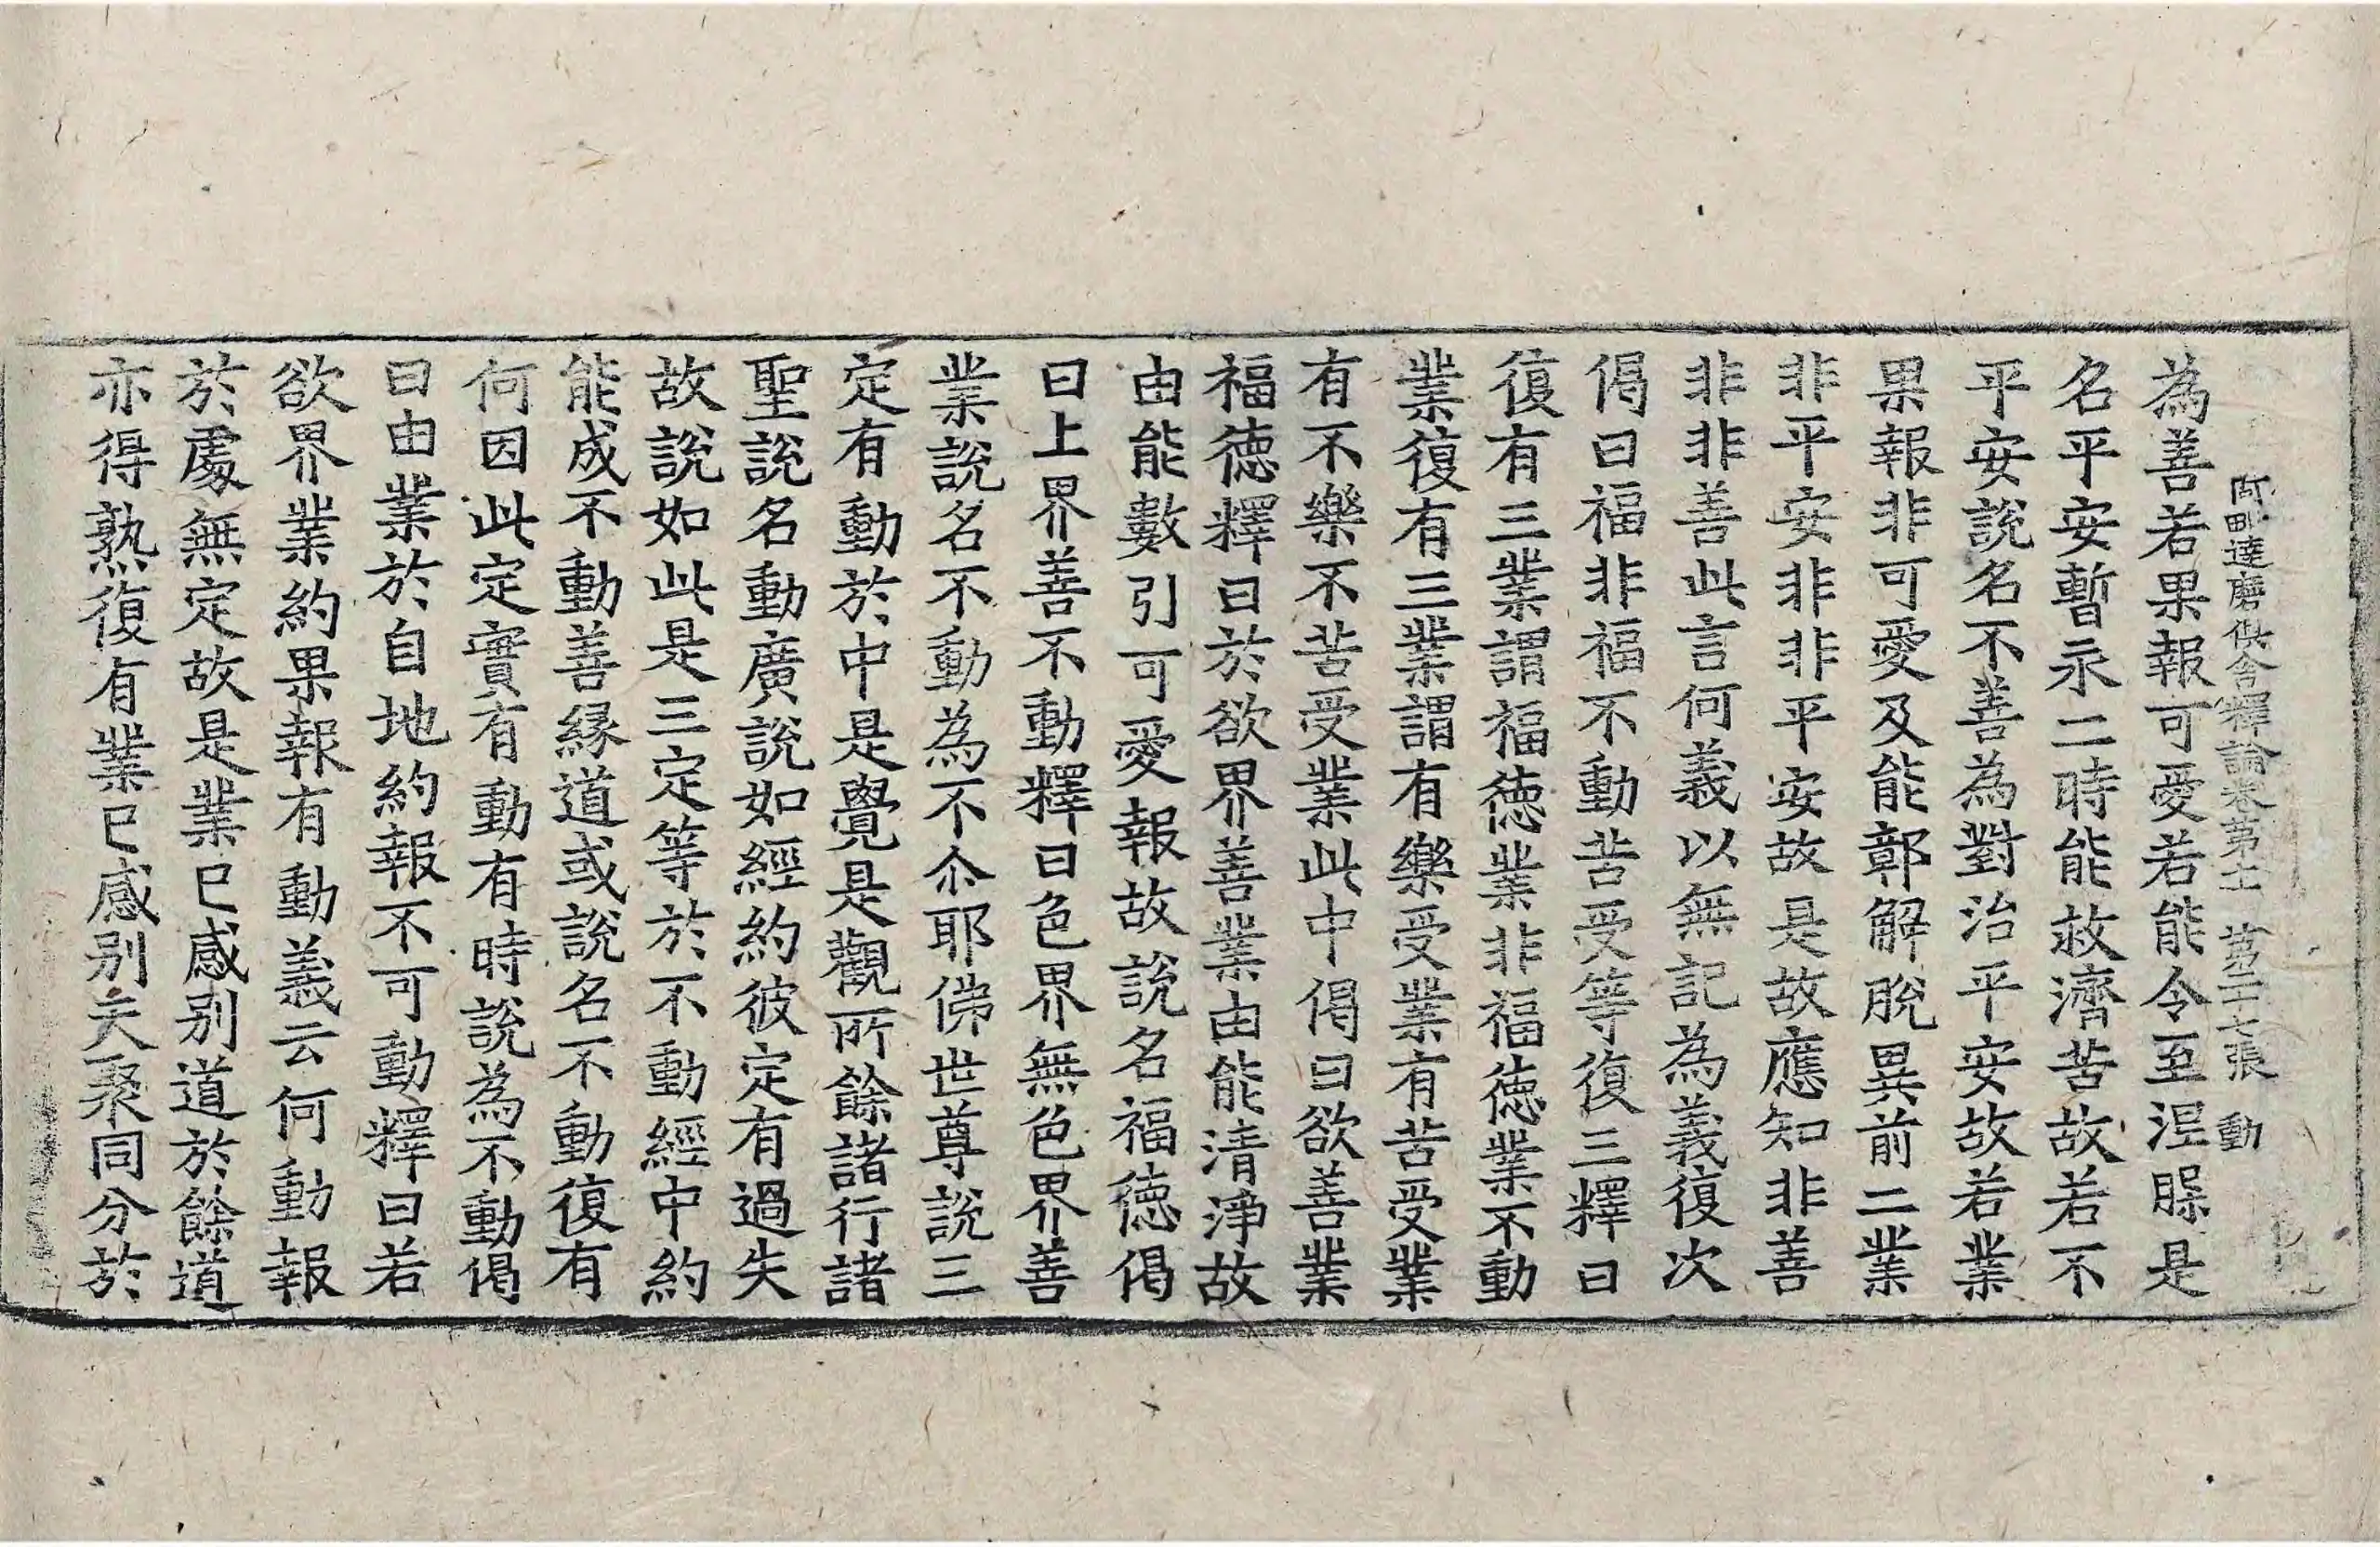 阿毗達磨俱舍釋論卷第十二 第二十七張 動
為善若果報可愛若能令至涅脲是
名平安暫永二時能救濟苦故若不
平安說名不善為對治平安故若業
果報非可愛及能鄣解脫異前二業
非平安非非平安故是故應知非善
非非善此言何義以無記為義復次
偈曰福非福不動苦受等復三釋曰
復有三業謂福德業非福德業不動
業復有三業謂有樂受業有苦受業
有不樂不苦受業此中偈曰欲善業
福德釋曰於欲界善業由能清淨故
由能數引可愛報故說名福德偈
曰上界善不動釋曰色界無色界善
業說名不動為不尒耶佛世尊說三
定有動於中是覺是觀所餘諸行諸
聖說名動廣說如經約彼定有過失
故說如此是三定等於不動經中約
能成不動善緣道或說名不動復有
何因此定實有動有時說為不動偈
曰由業於自地約報不可動釋曰若
欲界業約果報有動義云何動報
於處無定故是業已感别道於餘道
亦得熟復有業已感别天聚同分於